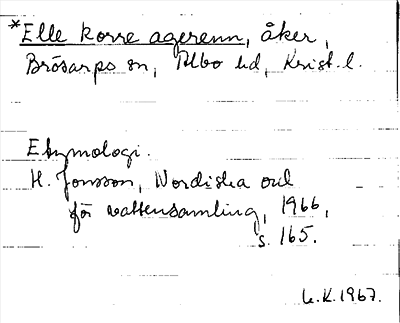 *Elle korre agerenn, åker,
Brösarps sn, Albo hd, Krist. l.
Etymologi.
H. Jonsson, Nordiska ord
för vattensamling, 1966,
s. 165.
L.K. 1967.